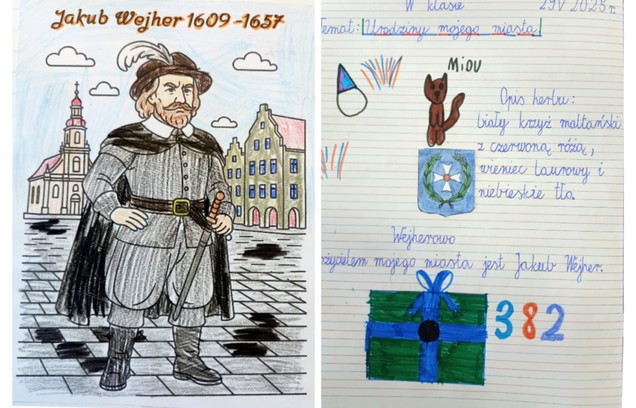 Jakub Wejher 1609-1657
W klasie 29V 2025r.
Temat: Urodziny mojego miasta
Miou
Opis herbu:
biały krzyż maltański
z czerwoną różą,
wieniec laurowy i
niebieskie tło.
Wejherowo
życielem mojego miasta jest Jakub Wejher.
382